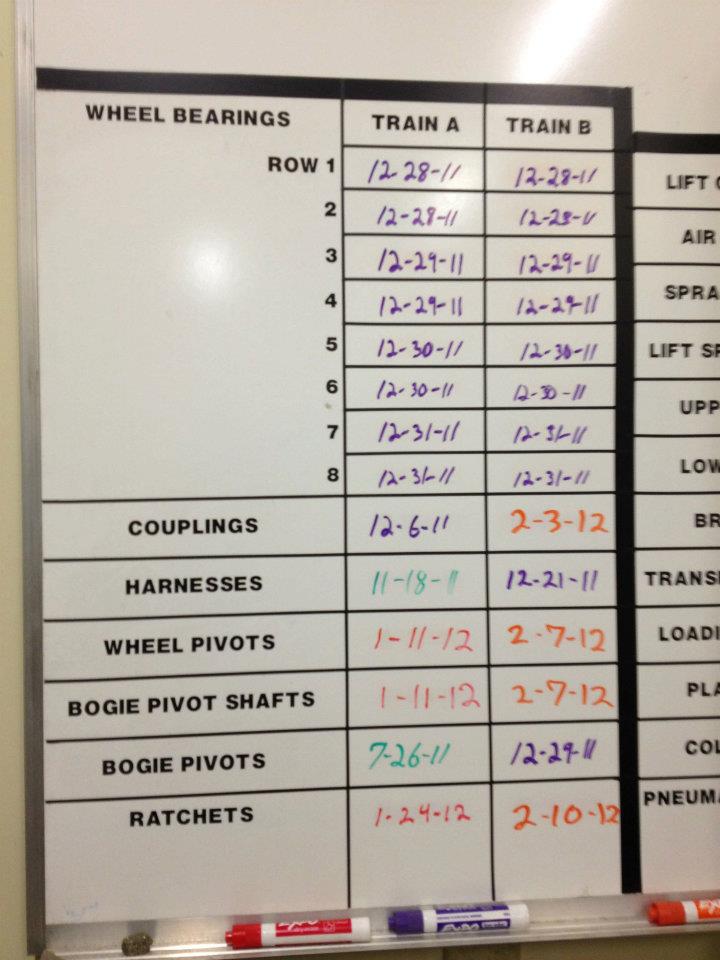 WHEEL BEARINGS TRAIN A TRAIN B
ROW 1 12-28-11 12-28-11
2 12-28-11 12-28-11
3 12-29-11 12-29-11
4 12-29-11 12-29-11
5 12-30-11 12-30-11
6 12-30-11 12-30-11
7 12-31-11 12-31-11
8 12-31-11 12-31-11
COUPLINGS 12-6-11 2-3-12
HARNESSES 11-18-11 12-21-11
WHEEL PIVOTS 1-11-12 2-7-12
BOGIE PIVOT SHAFTS 1-11-12 2-7-12
BOGIE PIVOTS 7-26-11 12-29-11
RATCHETS 1-24-12 2-10-12
LIFT
AIR
SPRA
LIFT SP
UPP
LOW
BR
TRANS
LOADI
PLA
COL
PNEUMA
EXPO
EXPO